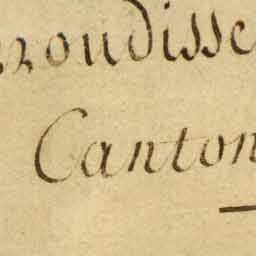 rrondisse
Canton